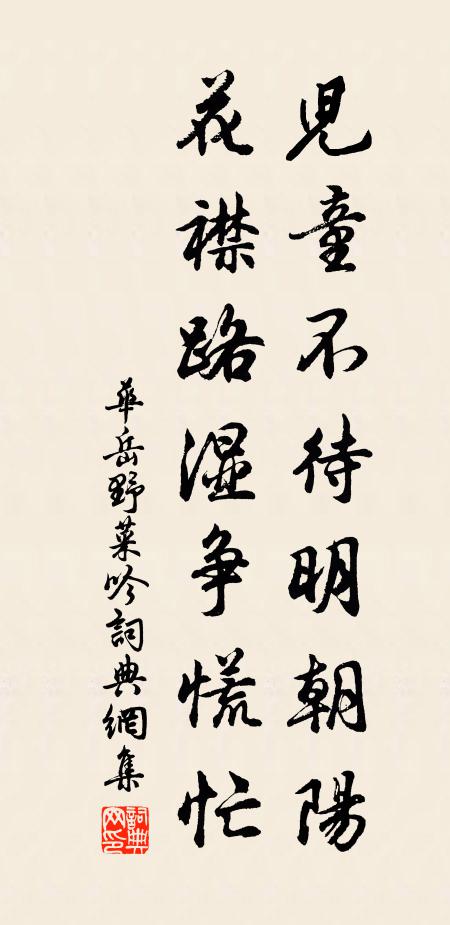 兒童不待明朝陽
花襟路濕爭慌忙
華岳野菜吟詞典網集
詞典網印